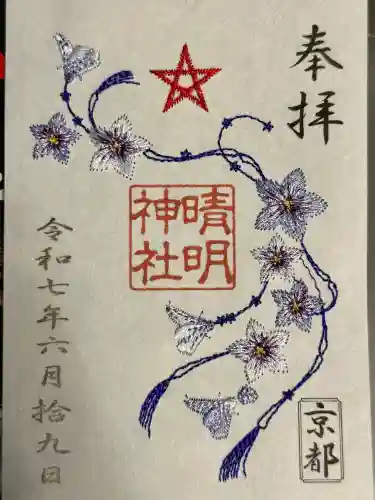 奉拝
晴明
神社
令和七年六月拾九日
京都